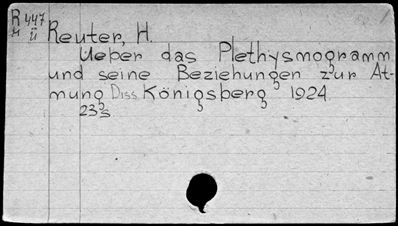 R 447 Reuter, H.
H ü
Ueber das Plethysmogramm
und seine Beziehungen zur At-
mung Diss. Königsberg 1924.
23 s